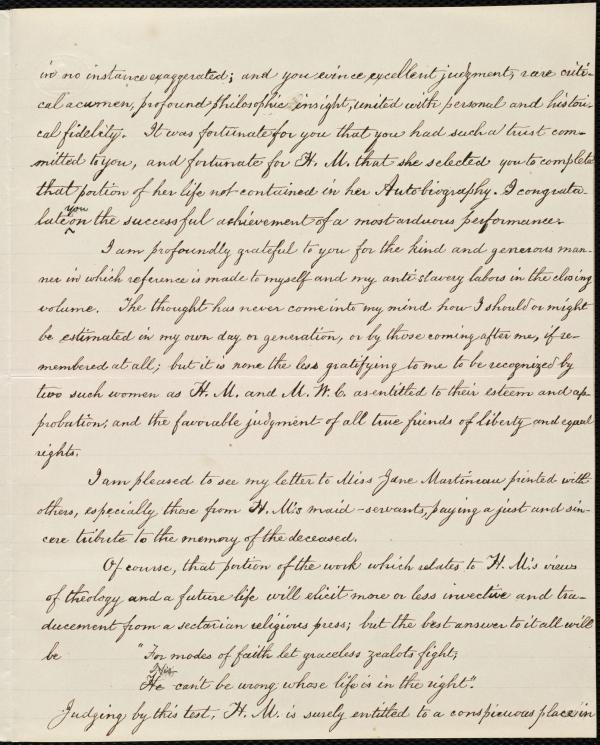 in no instance exaggerated; and you evince excellent judgment, rare criti-
cal acumen, profound philosophic insight, united with personal and histori-
cal fidelity. It was fortunate for you that you had such a trust com-
mitted to you, and fortunate for H. M. that she selected you to complete
that portion of her life not contained in her Autobiography. I congratu-
late you on the successful achievement of a most arduous performance.
I am profoundly grateful to you for the kind and generous man-
ner in which reference is made to myself and my anti-slavery labors in the closing
volume. The thought has never come into my mind how I should or might
be estimated in my own day or generation, or by those coming after me, if re-
membered at all; but it is none the less gratifying to me to be recognized by
two such women as H. M. and M. W. C. as entitled to their esteem and ap-
probation, and the favorable judgment of all true friends of liberty and equal
rights.
I am pleased to see my letter to Miss Jane Martineau printed with
others, especially those from H. M's maid-servants, paying a just and sin-
cere tribute to the memory of the deceased.
Of course, that portion of the work which relates to H. M.'s views
of theology and a future life will elicit more or less invective and tra-
ducement from a sectarian religious press; but the best answer to it all will
be "For modes of faith let graceless zealots fight;
He can't be wrong whose life is in the right."
Judging by this test, H. M. is surely entitled to a conspicuous place in